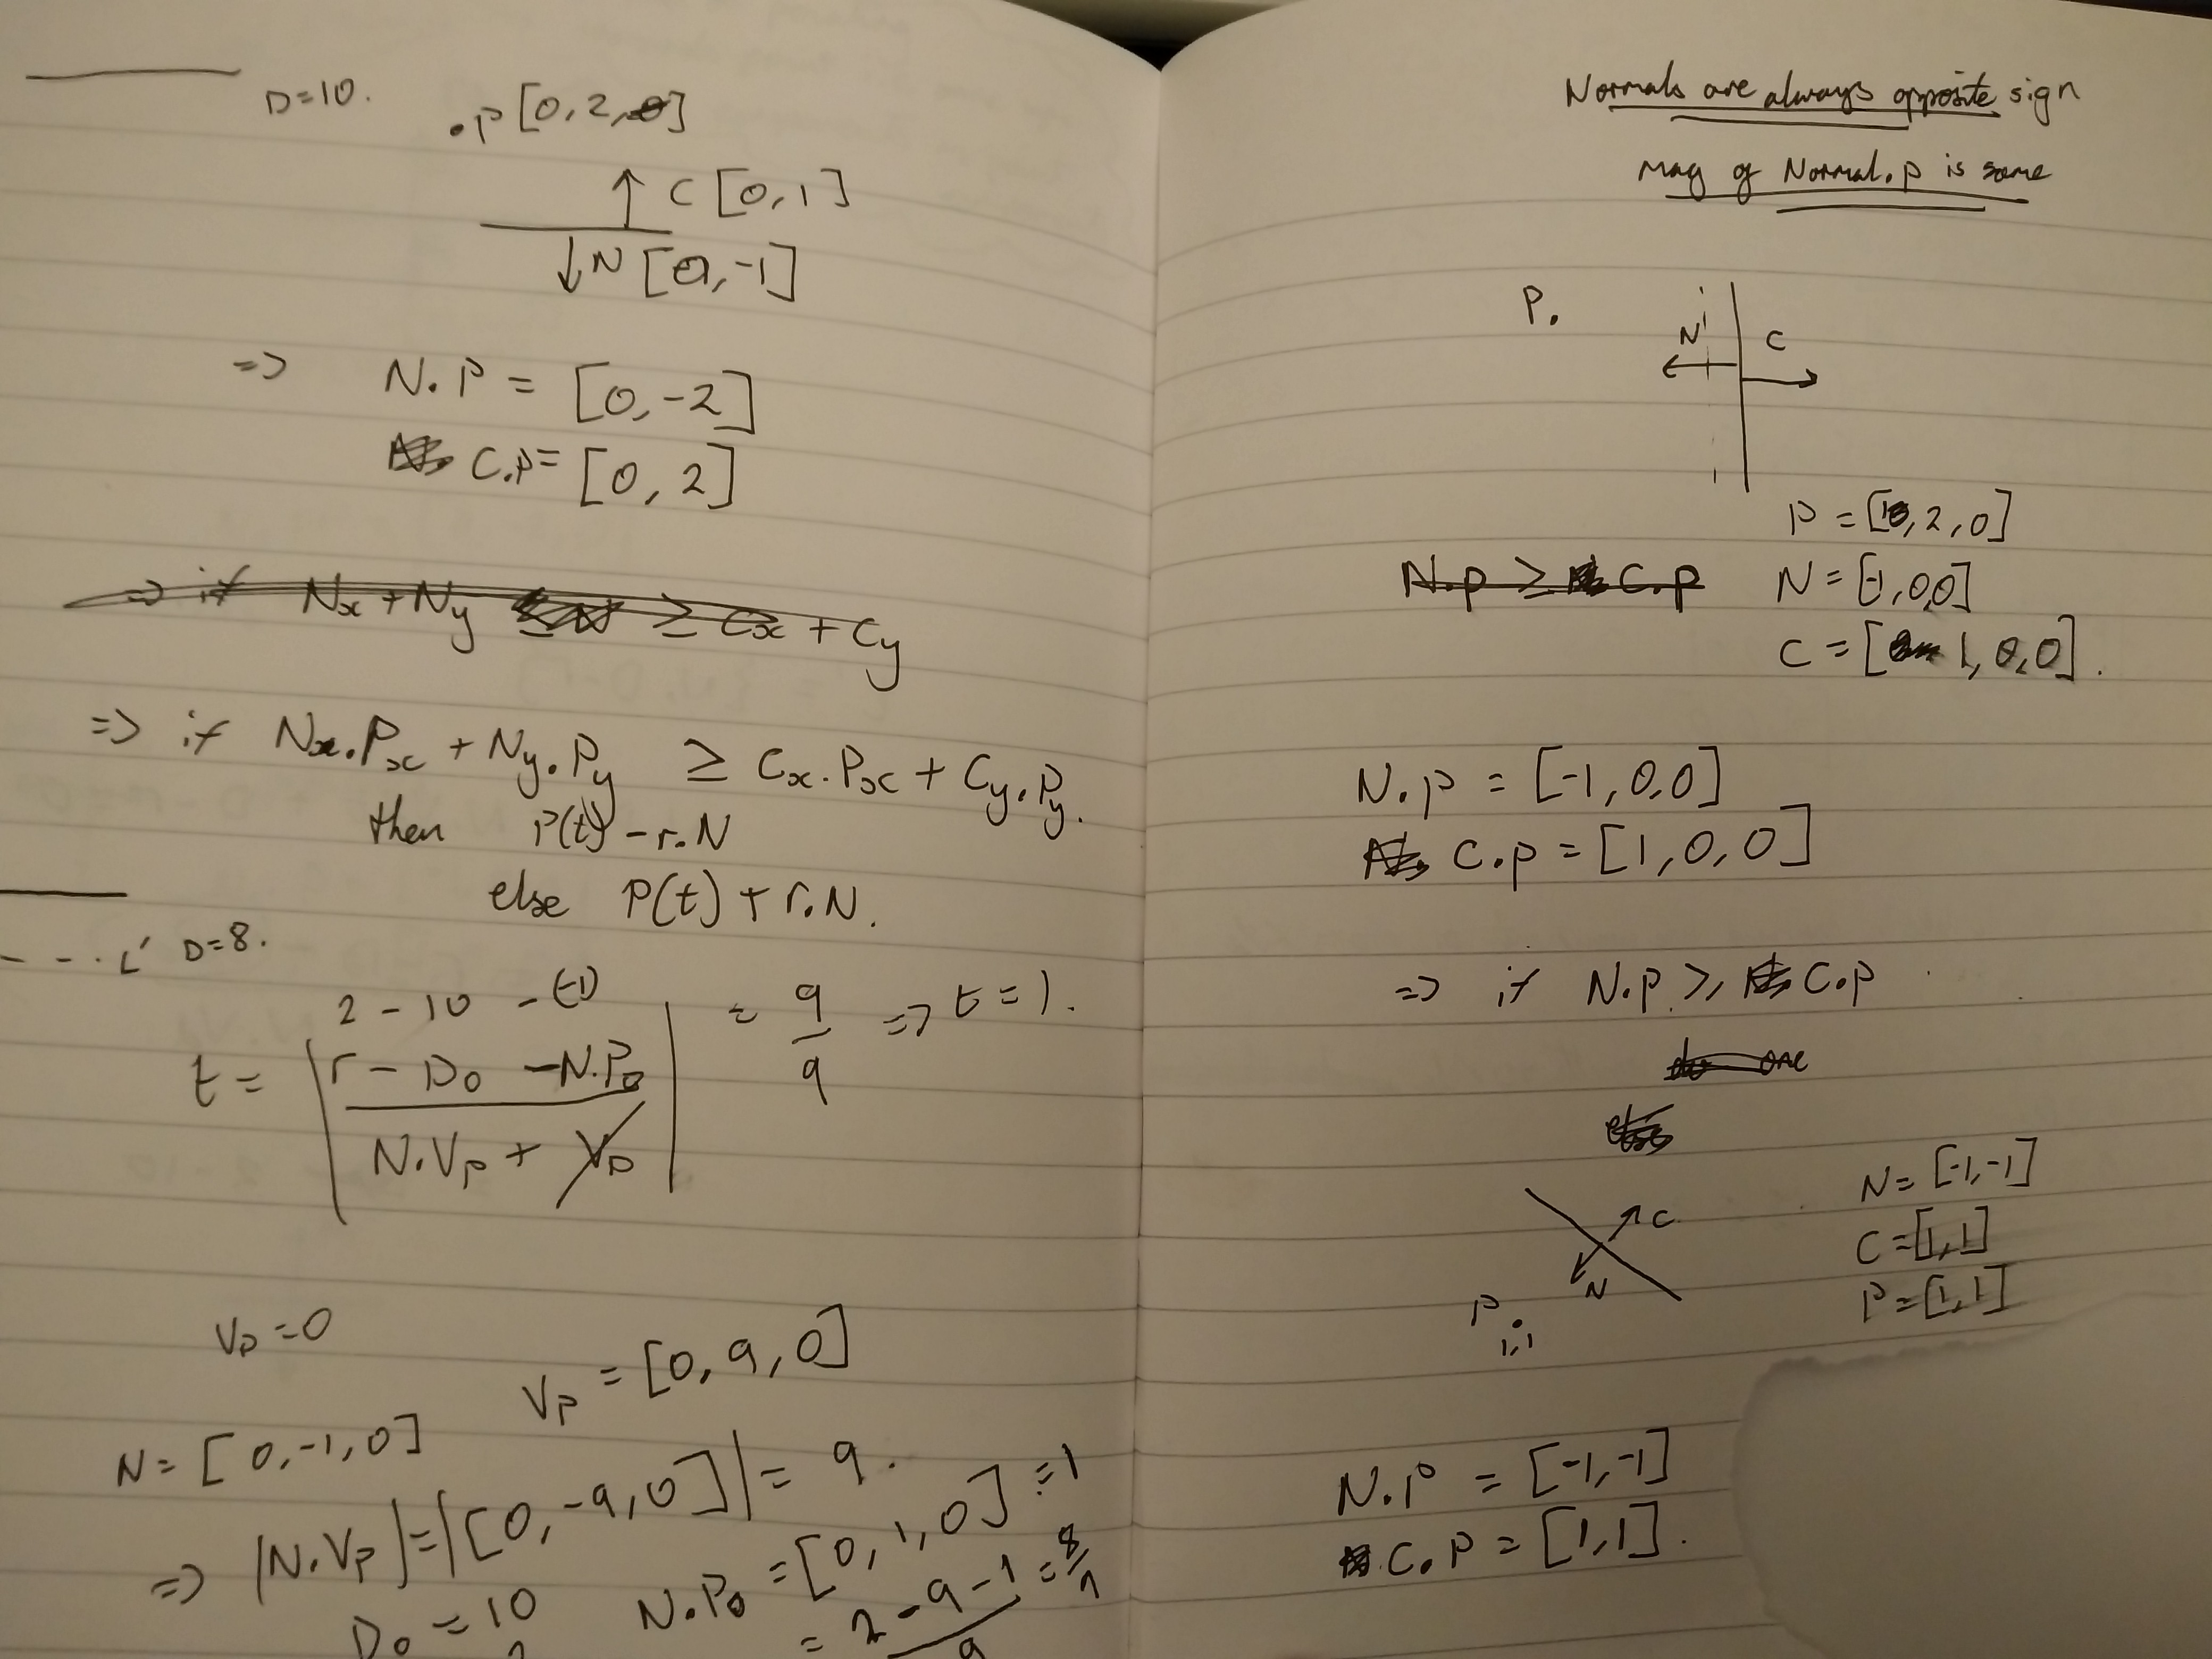 D=10.
.P [0, 2, 0]
C [0, 1]
N [0, -1]
=> N.P = [0, -2]
C.P = [0, 2]
=> if Nx + Ny ≥ Cx + Cy
=> if Nx.Px + Ny.Py ≥ Cx.Px + Cy.Py.
then P(t) - r.N
else P(t) + r.N.
L' D=8.
2 - 10 - (-1)
t = | r - D0 - N.P0 / N.Vp + VD | = 9/9 => t = 1.
VD = 0
Vp = [0, 9, 0]
N = [0, -1, 0]
=> |N.Vp| = |[0, -9, 0]| = 9.
D0 = 10
N.P0 = [0, 1, 0] = 1
= 2 - 9 - 1 / 9 = 8/9
Normals are always opposite sign
Mag of Normal.p is same
P.
N C
P = [1, 2, 0]
N.p ≥ C.p
N = [-1, 0, 0]
C = [1, 0, 0].
N.P = [-1, 0, 0]
C.P = [1, 0, 0]
=> if N.P ≥ C.P
one
else
C
N
P
1,1
N = [-1, -1]
C = [1, 1]
P = [1, 1]
N.P = [-1, -1]
C.P = [1, 1].